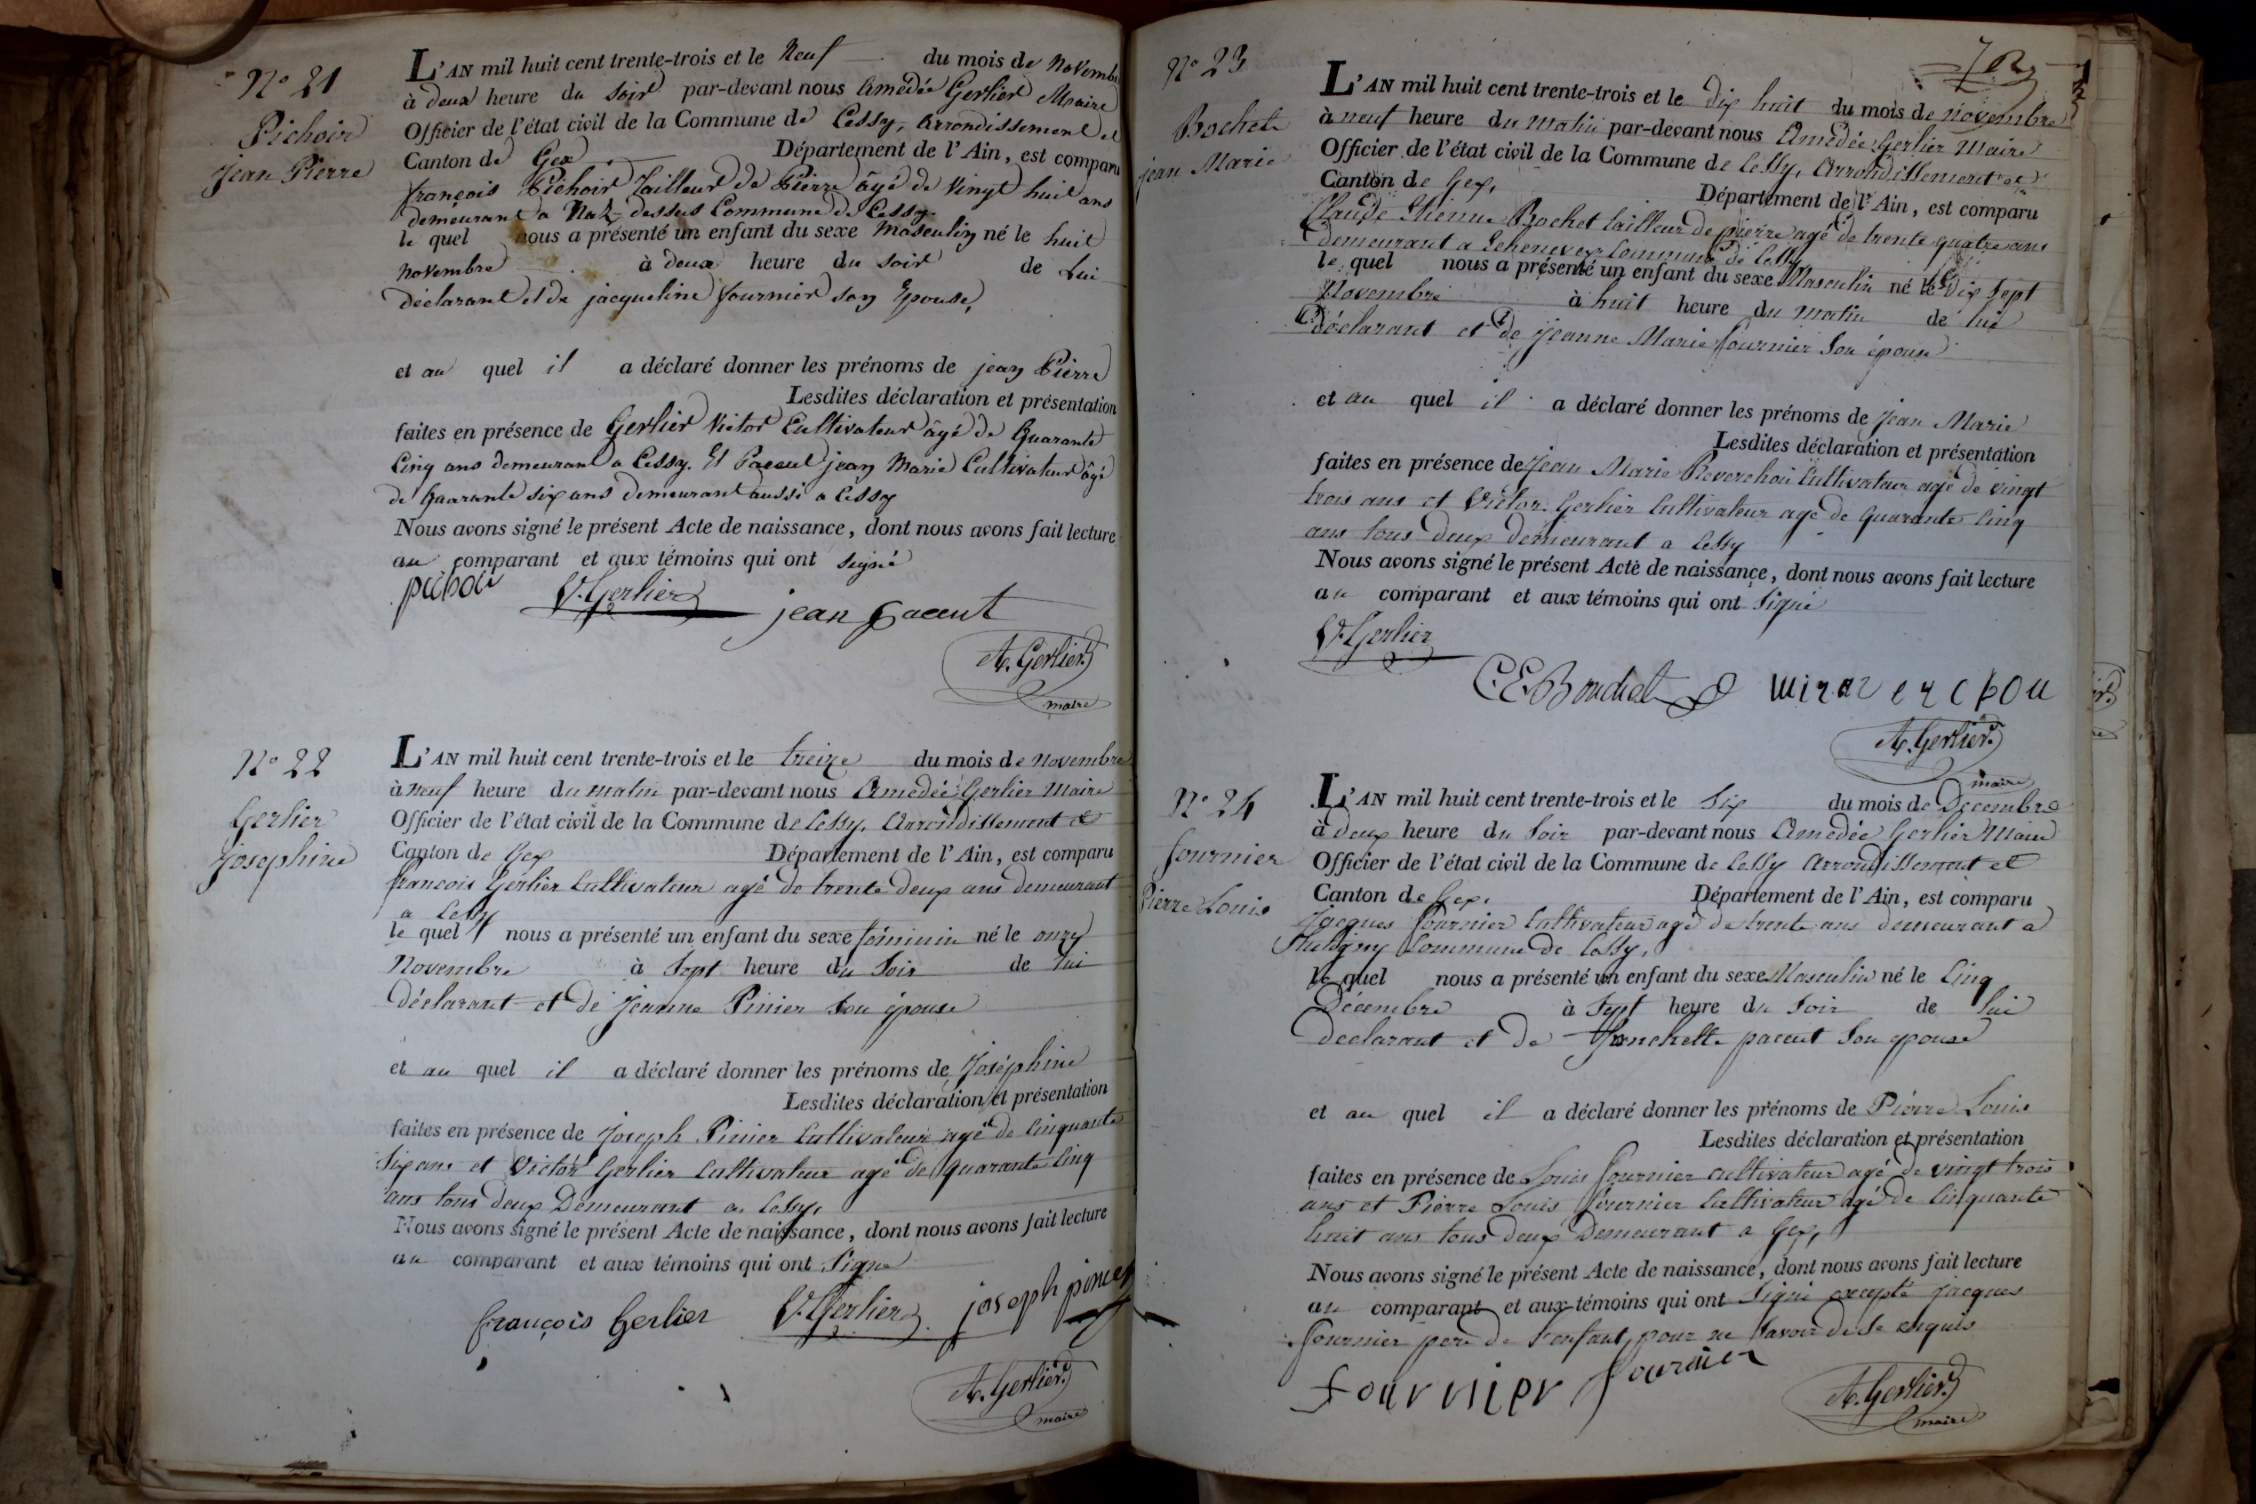 N° 21
Pichoir
Jean Pierre
L'AN mil huit cent trente-trois et le Neuf du mois de Novembre
à deux heure du soir par-devant nous Amédée Gerlier Maire
Officier de l'état civil de la Commune de Cessy, arrondissement et
Canton de Gex Département de l'Ain, est comparu
françois Pichoir Tailleur de Pierre âgé de vingt huit ans
demeurant a Naz-dessus Commune de Cessy.
le quel nous a présenté un enfant du sexe masculin né le huit
novembre à deux heure du soir de Lui
déclarant et de jacqueline fournier son Epouse,
et au quel il a déclaré donner les prénoms de jean Pierre
Lesdites déclaration et présentation
faites en présence de Gerlier Victor Cultivateur âgé de Quarante
Cinq ans demeurant a Cessy. Et Paccut jean Marie Cultivateur âgé
de Quarante six ans demeurant aussi a Cessy
Nous avons signé le présent Acte de naissance, dont nous avons fait lecture
au comparant et aux témoins qui ont signé
pichoir V. Gerlier jean paccut
A. Gerlier
maire
N° 22
Gerlier
Josephine
L'AN mil huit cent trente-trois et le treize du mois de novembre
à neuf heure du matin par-devant nous Amédée Gerlier Maire
Officier de l'état civil de la Commune de Cessy, Arrondissement et
Canton de Gex Département de l'Ain, est comparu
francois Gerlier Cultivateur agé de trente deux ans demeurant
a Cessy
le quel nous a présenté un enfant du sexe féminin né le onze
Novembre à Sept heure du Soir de lui
déclarant et de Jeanne Pinier son épouse
et au quel il a déclaré donner les prénoms de Joséphine
Lesdites déclaration et présentation
faites en présence de Joseph Pinier Cultivateur agé de Cinquante
Six ans et Victor Gerlier Cultivateur agé de quarante Cinq
ans tous deux Demeurant a Cessy,
Nous avons signé le présent Acte de naissance, dont nous avons fait lecture
au comparant et aux témoins qui ont Signé
françois Gerlier V. Gerlier joseph
A. Gerlier
maire
N° 23
Bochet
jean Marie
L'AN mil huit cent trente-trois et le dix huit du mois de novembre
à neuf heure du matin par-devant nous Amédée Gerlier Maire
Officier de l'état civil de la Commune de Cessy, Arrondissement et
Canton de Gex, Département de l'Ain, est comparu
Claude Etienne Bochet tailleur de pierre agé de trente quatre ans
demeurant a Commune de Cessy
le quel nous a présenté un enfant du sexe Masculin né le Dix Sept
Novembre à huit heure du matin de lui
Déclarant et de Jeanne Marie fournier Son épouse
et au quel il a déclaré donner les prénoms de Jean Marie
Lesdites déclaration et présentation
faites en présence de Jean Marie Reverchon Cultivateur agé de vingt
trois ans et Victor Gerlier Cultivateur agé de Quarante Cinq
ans tous deux demeurant a Cessy
Nous avons signé le présent Acte de naissance, dont nous avons fait lecture
au comparant et aux témoins qui ont Signé
V. Gerlier
C. E. Bouchet
A. Gerlier
maire
N° 24
fournier
Pierre Louis
L'AN mil huit cent trente-trois et le Six du mois de Decembre
à deux heure du Soir par-devant nous Amédée Gerlier Maire
Officier de l'état civil de la Commune de Cessy Arrondissement et
Canton de Gex, Département de l'Ain, est comparu
Jacques fournier Cultivateur agé de trente ans demeurant a
Commune de Cessy,
le quel nous a présenté un enfant du sexe Masculin né le Cinq
Décembre à Sept heure du Soir de lui
declarant et de paccut Son epouse
et au quel il a déclaré donner les prénoms de Pierre Louis
Lesdites déclaration et présentation
faites en présence de Louis fournier cultivateur agé de vingt trois
ans et Pierre Louis fournier Cultivateur agé de Cinquante
huit ans tous deux Demeurant a Gex,
Nous avons signé le présent Acte de naissance, dont nous avons fait lecture
au comparant et aux témoins qui ont Signé excepté jacques
fournier pere de l'enfant, pour ne Savoir de ce requis
fournier fournier
A. Gerlier
maire